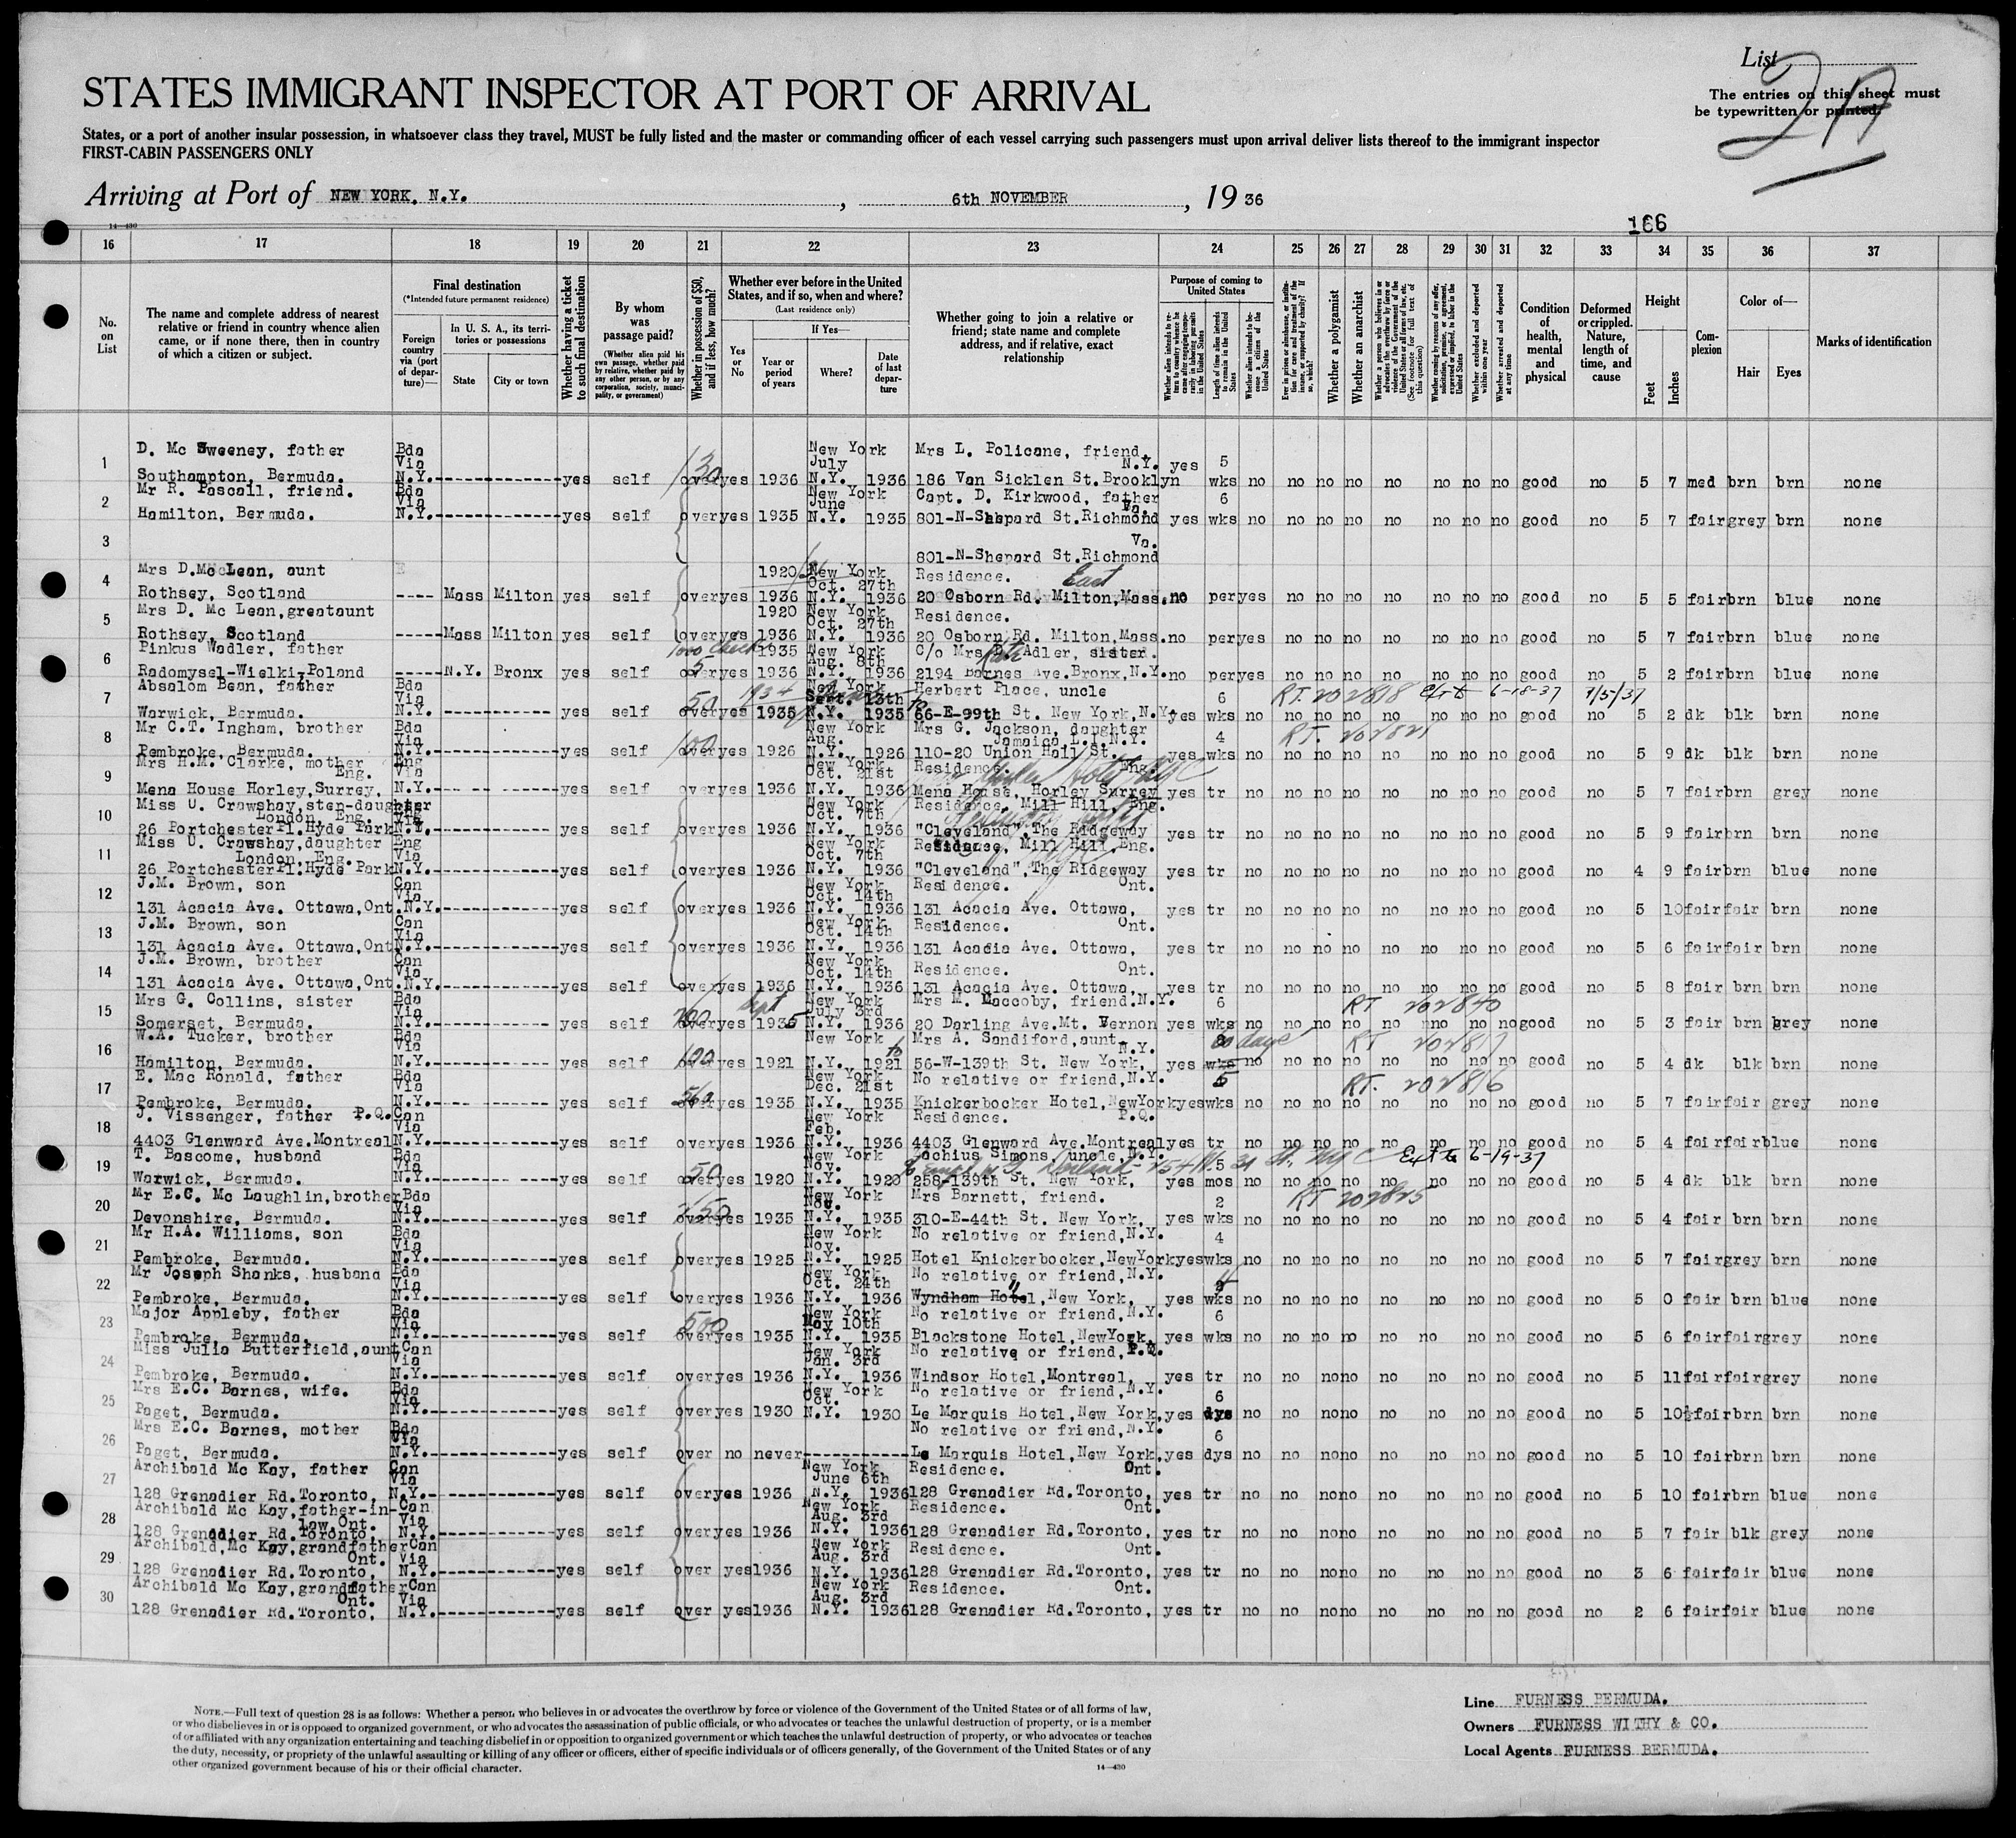 List
2A
The entries on this sheet must
be typewritten or printed.
STATES IMMIGRANT INSPECTOR AT PORT OF ARRIVAL
States, or a port of another insular possession, in whatsoever class they travel, MUST be fully listed and the master or commanding officer of each vessel carrying such passengers must upon arrival deliver lists thereof to the immigrant inspector
FIRST-CABIN PASSENGERS ONLY
Arriving at Port of NEW YORK, N.Y., 6th NOVEMBER, 19 36
166
14—430
16 17 18 19 20 21 22 23 24 25 26 27 28 29 30 31 32 33 34 35 36 37
No. on List
The name and complete address of nearest relative or friend in country whence alien came, or if none there, then in country of which a citizen or subject.
Final destination
(*Intended future permanent residence)
Foreign country via (port of departure)—
In U. S. A., its territories or possessions
State City or town
Whether having a ticket to such final destination
By whom was passage paid?
(Whether alien paid his own passage, whether paid by relative, whether paid by any other person, or by any corporation, society, municipality, or government)
Whether in possession of $50, and if less, how much?
Whether ever before in the United States, and if so, when and where?
(Last residence only)
Yes or No
If Yes—
Year or period of years
Where?
Date of last departure
Whether going to join a relative or friend; state name and complete address, and if relative, exact relationship
Purpose of coming to United States
Length of time alien intends to remain in the United States
Whether alien intends to become a citizen of the United States
Whether a polygamist
Whether an anarchist
Whether excluded and deported within one year
Whether arrested and deported at any time
Condition of health, mental and physical
Deformed or crippled. Nature, length of time, and cause
Height
Feet Inches
Complexion
Color of—
Hair Eyes
Marks of identification
1 D. Mc Sweeney, father Bda Via New York July Mrs L. Policane, friend, N.Y. 5
Southampton, Bermuda. N.Y. yes self over yes 1936 N.Y. 1936 186 Van Sicklen St. Brooklyn yes wks no no no no no no no no good no 5 7 med brn brn none
2 Mr R. Pascall, friend. Bda Via New York June Capt. D. Kirkwood, father Va. 6
Hamilton, Bermuda. N.Y. yes self over yes 1935 N.Y. 1935 801-N-Shepard St. Richmond yes wks no no no no no no no no good no 5 7 fair grey brn none
3 Va.
801-N-Shepard St. Richmond
4 Mrs D. McLean, aunt 1920 New York Oct. 27th Residence. East
Rothsey, Scotland Mass Milton yes self over yes 1936 N.Y. 1936 20 Osborn Rd. Milton, Mass. no per yes no no no no no no no good no 5 5 fair brn blue none
5 Mrs D. Mc Lean, greataunt 1920 New York Oct. 27th Residence.
Rothsey, Scotland Mass Milton yes self over yes 1936 N.Y. 1936 20 Osborn Rd. Milton, Mass. no per yes no no no no no no no good no 5 7 fair brn blue none
6 Pinkus Wadler, father 1935 New York Aug. 8th C/o Mrs Adler, sister.
Radomysel-Wielki, Poland N.Y. Bronx yes self over yes 1936 N.Y. 1936 2194 Barnes Ave. Bronx, N.Y. no per yes no no no no no no no good no 5 2 fair brn blue none
7 Absalom Bean, father Bda Via 50 1934 New York Sept. 13th Herbert Place, uncle 6 RT. 202818 6-18-37 7/5/37
Warwick, Bermuda. N.Y. yes self over yes 1935 N.Y. 1935 66-E-99th St. New York, N.Y. yes wks no no no no no no no no good no 5 2 dk blk brn none
8 Mr C.T. Ingham, brother Bda Via 100 New York Aug. Mrs G. Jackson, daughter Jamaica L.I. N.Y. 4 RT. 202821
Pembroke, Bermuda. N.Y. yes self over yes 1926 N.Y. 1926 110-20 Union Hall St. yes wks no no no no no no no no good no 5 9 dk blk brn none
9 Mrs H.M. Clarke, mother Eng. Eng Via New York Oct. 21st Residence. Eng.
Mena House Horley, Surrey, N.Y. yes self over yes 1936 N.Y. 1936 Mena House, Horley Surrey yes tr no no no no no no no no good no 5 7 fair brn grey none
10 Miss U. Crawshay, step-daughter London, Eng. Eng Via New York Oct. 7th Residence, Mill Hill, Eng.
26 Portchester Pl. Hyde Park N.Y. yes self over yes 1936 N.Y. 1936 "Cleveland", The Ridgeway yes tr no no no no no no no no good no 5 9 fair brn brn none
11 Miss U. Crawshay, daughter London, Eng. Eng Via New York Oct. 7th Residence, Mill Hill. Eng.
26 Portchester Pl. Hyde Park N.Y. yes self over yes 1936 N.Y. 1936 "Cleveland", The Ridgeway yes tr no no no no no no no no good no 4 9 fair brn blue none
12 J.M. Brown, son Can Via New York Oct. 14th Residence. Ont.
131 Acacia Ave. Ottawa, Ont. N.Y. yes self over yes 1936 N.Y. 1936 131 Acacia Ave. Ottawa, yes tr no no no no no no no no good no 5 10 fair fair brn none
13 J.M. Brown, son Can Via New York Oct. 14th Residence. Ont.
131 Acacia Ave. Ottawa, Ont N.Y. yes self over yes 1936 N.Y. 1936 131 Acacia Ave. Ottawa, yes tr no no no no no no no no good no 5 6 fair fair brn none
14 J.M. Brown, brother Can Via New York Oct. 14th Residence. Ont.
131 Acacia Ave. Ottawa, Ont. N.Y. yes self over yes 1936 N.Y. 1936 131 Acacia Ave. Ottawa, yes tr no no no no no no no no good no 5 8 fair brn brn none
15 Mrs G. Collins, sister Bda Via 200 Sept New York July 3rd Mrs M. Maccoby, friend. N.Y. 6 RT 202840
Somerset, Bermuda. N.Y. yes self over yes 1935 N.Y. 1936 20 Darling Ave. Mt. Vernon yes wks no no no no no no no no good no 5 3 fair brn grey none
16 W.A. Tucker, brother Bda Via 100 New York Mrs A. Sandiford, aunt N.Y. 60 days RT 202817
Hamilton, Bermuda. N.Y. yes self over yes 1921 N.Y. 1921 56-W-139th St. New York, yes wks no no no no no no no no good no 5 4 dk blk brn none
17 E. Mac Ronald, father Bda Via 560 New York Dec. 21st No relative or friend, N.Y. 5 RT. 202816
Pembroke, Bermuda. N.Y. yes self over yes 1935 N.Y. 1935 Knickerbocker Hotel, New York yes wks no no no no no no no no good no 5 7 fair fair grey none
18 J. Vissenger, father P.Q. Can Via New York Feb. Residence. P.Q.
4403 Glenward Ave. Montreal N.Y. yes self over yes 1936 N.Y. 1936 4403 Glenward Ave. Montreal yes tr no no no no no no no no good no 5 4 fair fair blue none
19 T. Bascome, husband Bda Via 50 New York Nov. Zochius Simons, uncle, N.Y. 5 6-19-37
Warwick, Bermuda. N.Y. yes self over yes 1920 N.Y. 1920 258-139th St. New York, yes mos no no no no no no no no good no 5 4 dk blk brn none
20 Mr E.C. Mc Laughlin, brother Bda Via 150 New York Nov. Mrs Barnett, friend. 2 RT 202825
Devonshire, Bermuda. N.Y. yes self over yes 1935 N.Y. 1935 310-E-44th St. New York, yes wks no no no no no no no no good no 5 4 fair brn brn none
21 Mr H.A. Williams, son Bda Via New York Nov. No relative or friend, N.Y. 4
Pembroke, Bermuda. N.Y. yes self over yes 1925 N.Y. 1925 Hotel Knickerbocker, New York yes wks no no no no no no no no good no 5 7 fair grey brn none
22 Mr Joseph Shanks, husband Bda Via New York Oct. 24th No relative or friend, N.Y. 4
Pembroke, Bermuda. N.Y. yes self over yes 1936 N.Y. 1936 Wyndham Hotel, New York, yes wks no no no no no no no no good no 5 0 fair brn blue none
23 Major Appleby, father Bda Via 500 New York May 10th No relative or friend, N.Y. 6
Pembroke, Bermuda. N.Y. yes self over yes 1935 N.Y. 1935 Blackstone Hotel, New York, yes wks no no no no no no no no good no 5 6 fair fair grey none
24 Miss Julia Butterfield, aunt Can Via New York Jan. 3rd No relative or friend, P.Q.
Pembroke, Bermuda. N.Y. yes self over yes 1936 N.Y. 1936 Windsor Hotel, Montreal, yes tr no no no no no no no no good no 5 11 fair fair grey none
25 Mrs E.C. Barnes, wife. Bda Via New York Oct. No relative or friend, N.Y. 6
Paget, Bermuda. N.Y. yes self over yes 1930 N.Y. 1930 Le Marquis Hotel, New York, yes dys no no no no no no no no good no 5 10½ fair brn brn none
26 Mrs E.C. Barnes, mother Bda Via No relative or friend, N.Y. 6
Paget, Bermuda. N.Y. yes self over no never Le Marquis Hotel, New York, yes dys no no no no no no no no good no 5 10 fair brn brn none
27 Archibald Mc Kay, father Can Via New York June 6th Residence. Ont.
128 Grenadier Rd. Toronto, N.Y. yes self over yes 1936 N.Y. 1936 128 Grenadier Rd. Toronto, yes tr no no no no no no no no good no 5 10 fair brn blue none
28 Archibald Mc Kay, father-in-law Ont. Can Via New York Aug. 3rd Residence. Ont.
128 Grenadier Rd. Toronto, N.Y. yes self over yes 1936 N.Y. 1936 128 Grenadier Rd. Toronto, yes tr no no no no no no no no good no 5 7 fair blk grey none
29 Archibald, Mc Kay, grandfather Ont. Can Via New York Aug. 3rd Residence. Ont.
128 Grenadier Rd. Toronto, N.Y. yes self over yes 1936 N.Y. 1936 128 Grenadier Rd. Toronto, yes tr no no no no no no no no good no 3 6 fair fair blue none
30 Archibald Mc Kay, grandfather Ont. Can Via New York Aug. 3rd Residence. Ont.
128 Grenadier Rd. Toronto, N.Y. yes self over yes 1936 N.Y. 1936 128 Grenadier Rd. Toronto, yes tr no no no no no no no no good no 2 6 fair fair blue none
NOTE.—Full text of question 28 is as follows: Whether a person who believes in or advocates the overthrow by force or violence of the Government of the United States or of all forms of law,
or who disbelieves in or is opposed to organized government, or who advocates the assassination of public officials, or who advocates or teaches the unlawful destruction of property, or is a member
of or affiliated with any organization entertaining and teaching disbelief in or opposition to organized government or which teaches the unlawful destruction of property, or who advocates or teaches
the duty, necessity, or propriety of the unlawful assaulting or killing of any officer or officers, either of specific individuals or of officers generally, of the Government of the United States or of any
other organized government because of his or their official character.
14—430
Line FURNESS BERMUDA.
Owners FURNESS WITHY & CO.
Local Agents FURNESS BERMUDA.